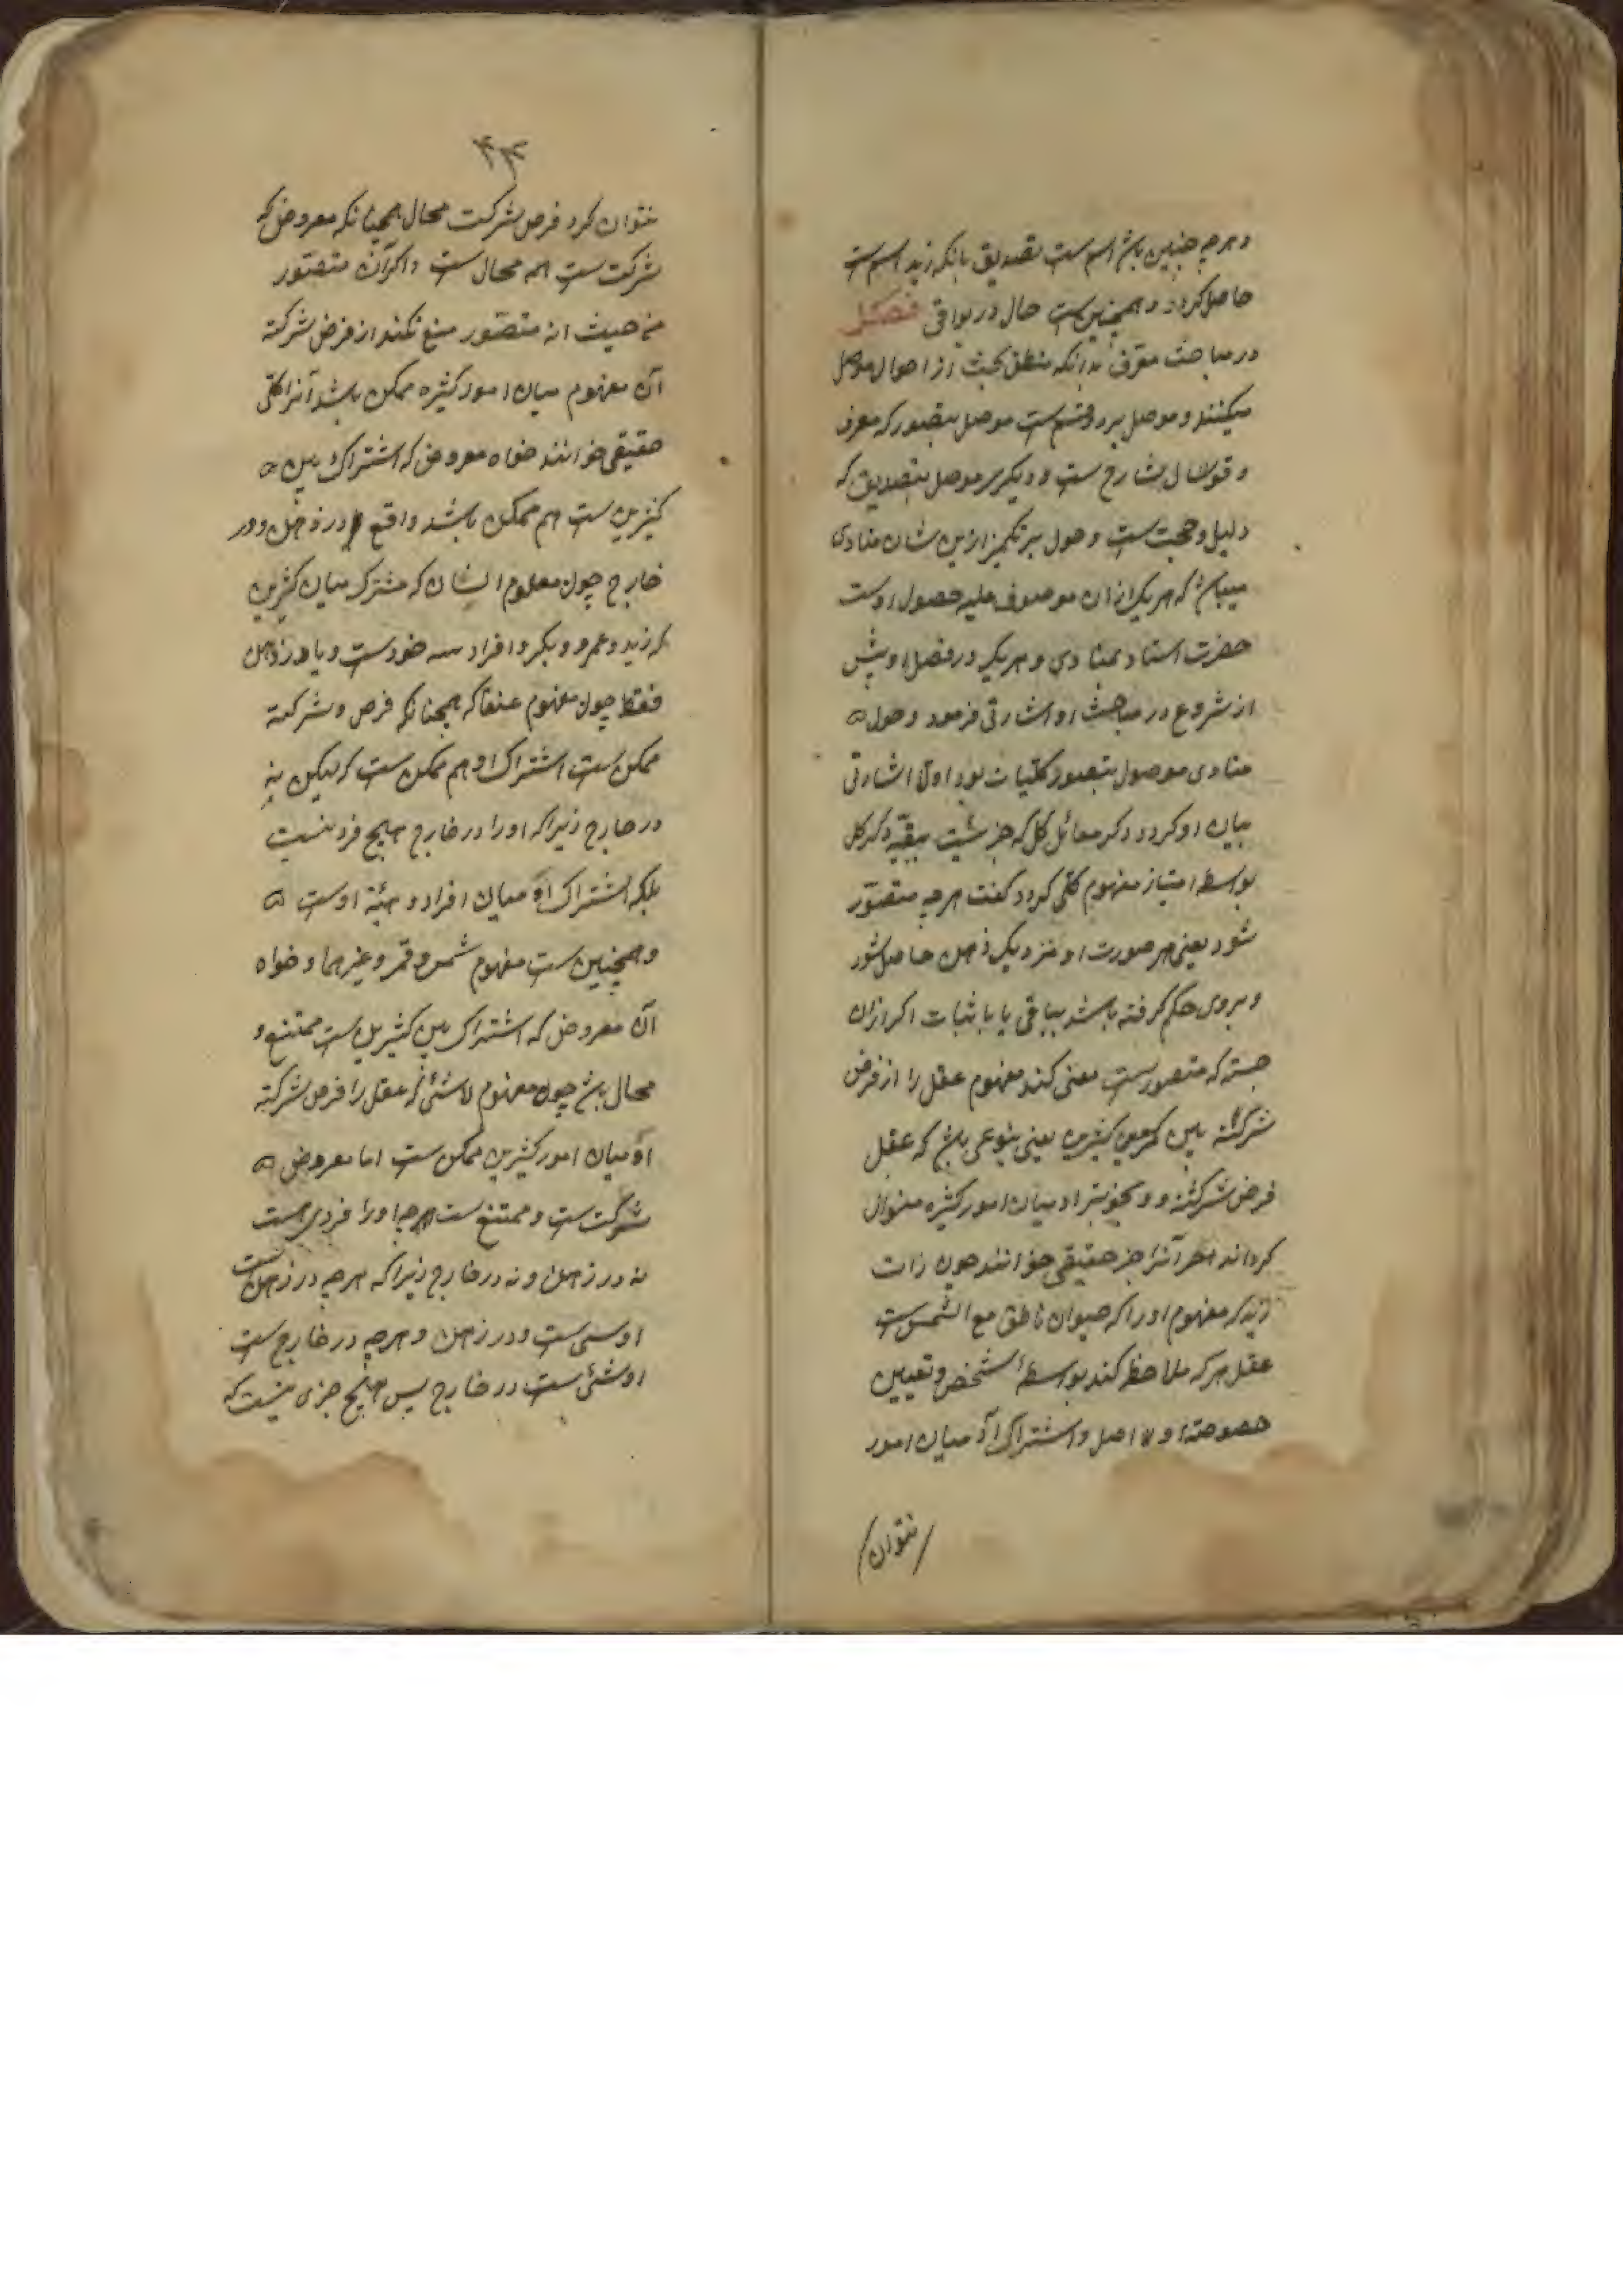 و هرچه چنین باش اسم ست تصدیق بانکه زید اسم ست
حاصل کردد و همچنین ست حال در بواقی فصل
در مباحث معرف بدانکه منطق بحث از احوال موصل
میکنند و موصل بر دو قسم ست موصل بتصور که معرف
و قول شارح ست و دیکر موصل بتصدیق که
دلیل و حجت ست و حول هر یکی از این شان مبادی
میباش که هر یک از ان موصوف علیه حصول اوست
حضرت استاد مبادی هر یک در فصل او پیش
از شروع در مباحث او اشارتی فرمود و چون
مبادی موصول بتصور کلیات بود اول اشارتی
بیان او کرد و ذکر
بواسطه امتیاز مفهوم کلی کرد و کفت هرچه متصور
شود یعنی هر صورت او نزدیک ذهن حاصل شود
و بروی حکم کرفته باشد بباقی یا باثبات اکر از ان
جسته که متصور ست معنی کند مفهوم عقل را از فرض
شرکته بین کثیرین یعنی بنوعی باش که عقل
فرض شرکته و میان امور کثیره منوال
کرداند آنرا جز حقیقی خوانند چون ذات
زید که مفهوم او را که حیوان ناطق مع التشخص ست
عقل هر که ملاحظه کند بواسطه تشخص و تعیین
خصوصة او و اشتراک او میان امور
نتوان
۴۳
نتوان کرد فرض شرکت محال همچنانکه معروض که
شرکت ست همه محال ست و اکر آن متصور
من حیث انه متصور منع نکند از فرض شرکته
آن مفهوم میان امور کثیره ممکن باشد آنرا کلی
حقیقی خوانند خواه معروض که اشتراک بین
کثیرین ست هم ممکن باشد واقع در ذهن و در
خارج چون معلوم انسان که مشترک میان کثیرین
که زید و عمرو و بکر و افراد خودست و یا در ذهن
فقط چون مفهوم عنقا که همچنانکه فرض و شرکته
ممکن ست اشتراک او هم ممکن ست که لیکن نه
در خارج زیرا که او را در خارج هیچ فرد نیست
بلکه اشتراک او میان افراد ذهنیة اوست
و همچنین ست مفهوم شمس و قمر و غیرهما و خواه
آن معروض که اشتراک بین کثیرین ست ممتنع و
محال باش چون مفهوم لاشئ که عقل را فرض شرکته
او میان امور کثیرین ممکن ست اما معروض
شرکت ست و ممتنع ست هرچه او را فردی هست
نه در ذهن و نه در خارج زیرا که هرچه در ذهن ست
او شئ ست در ذهن و هرچه در خارج ست
او شئ ست در خارج پس هیچ چیزی نیست که